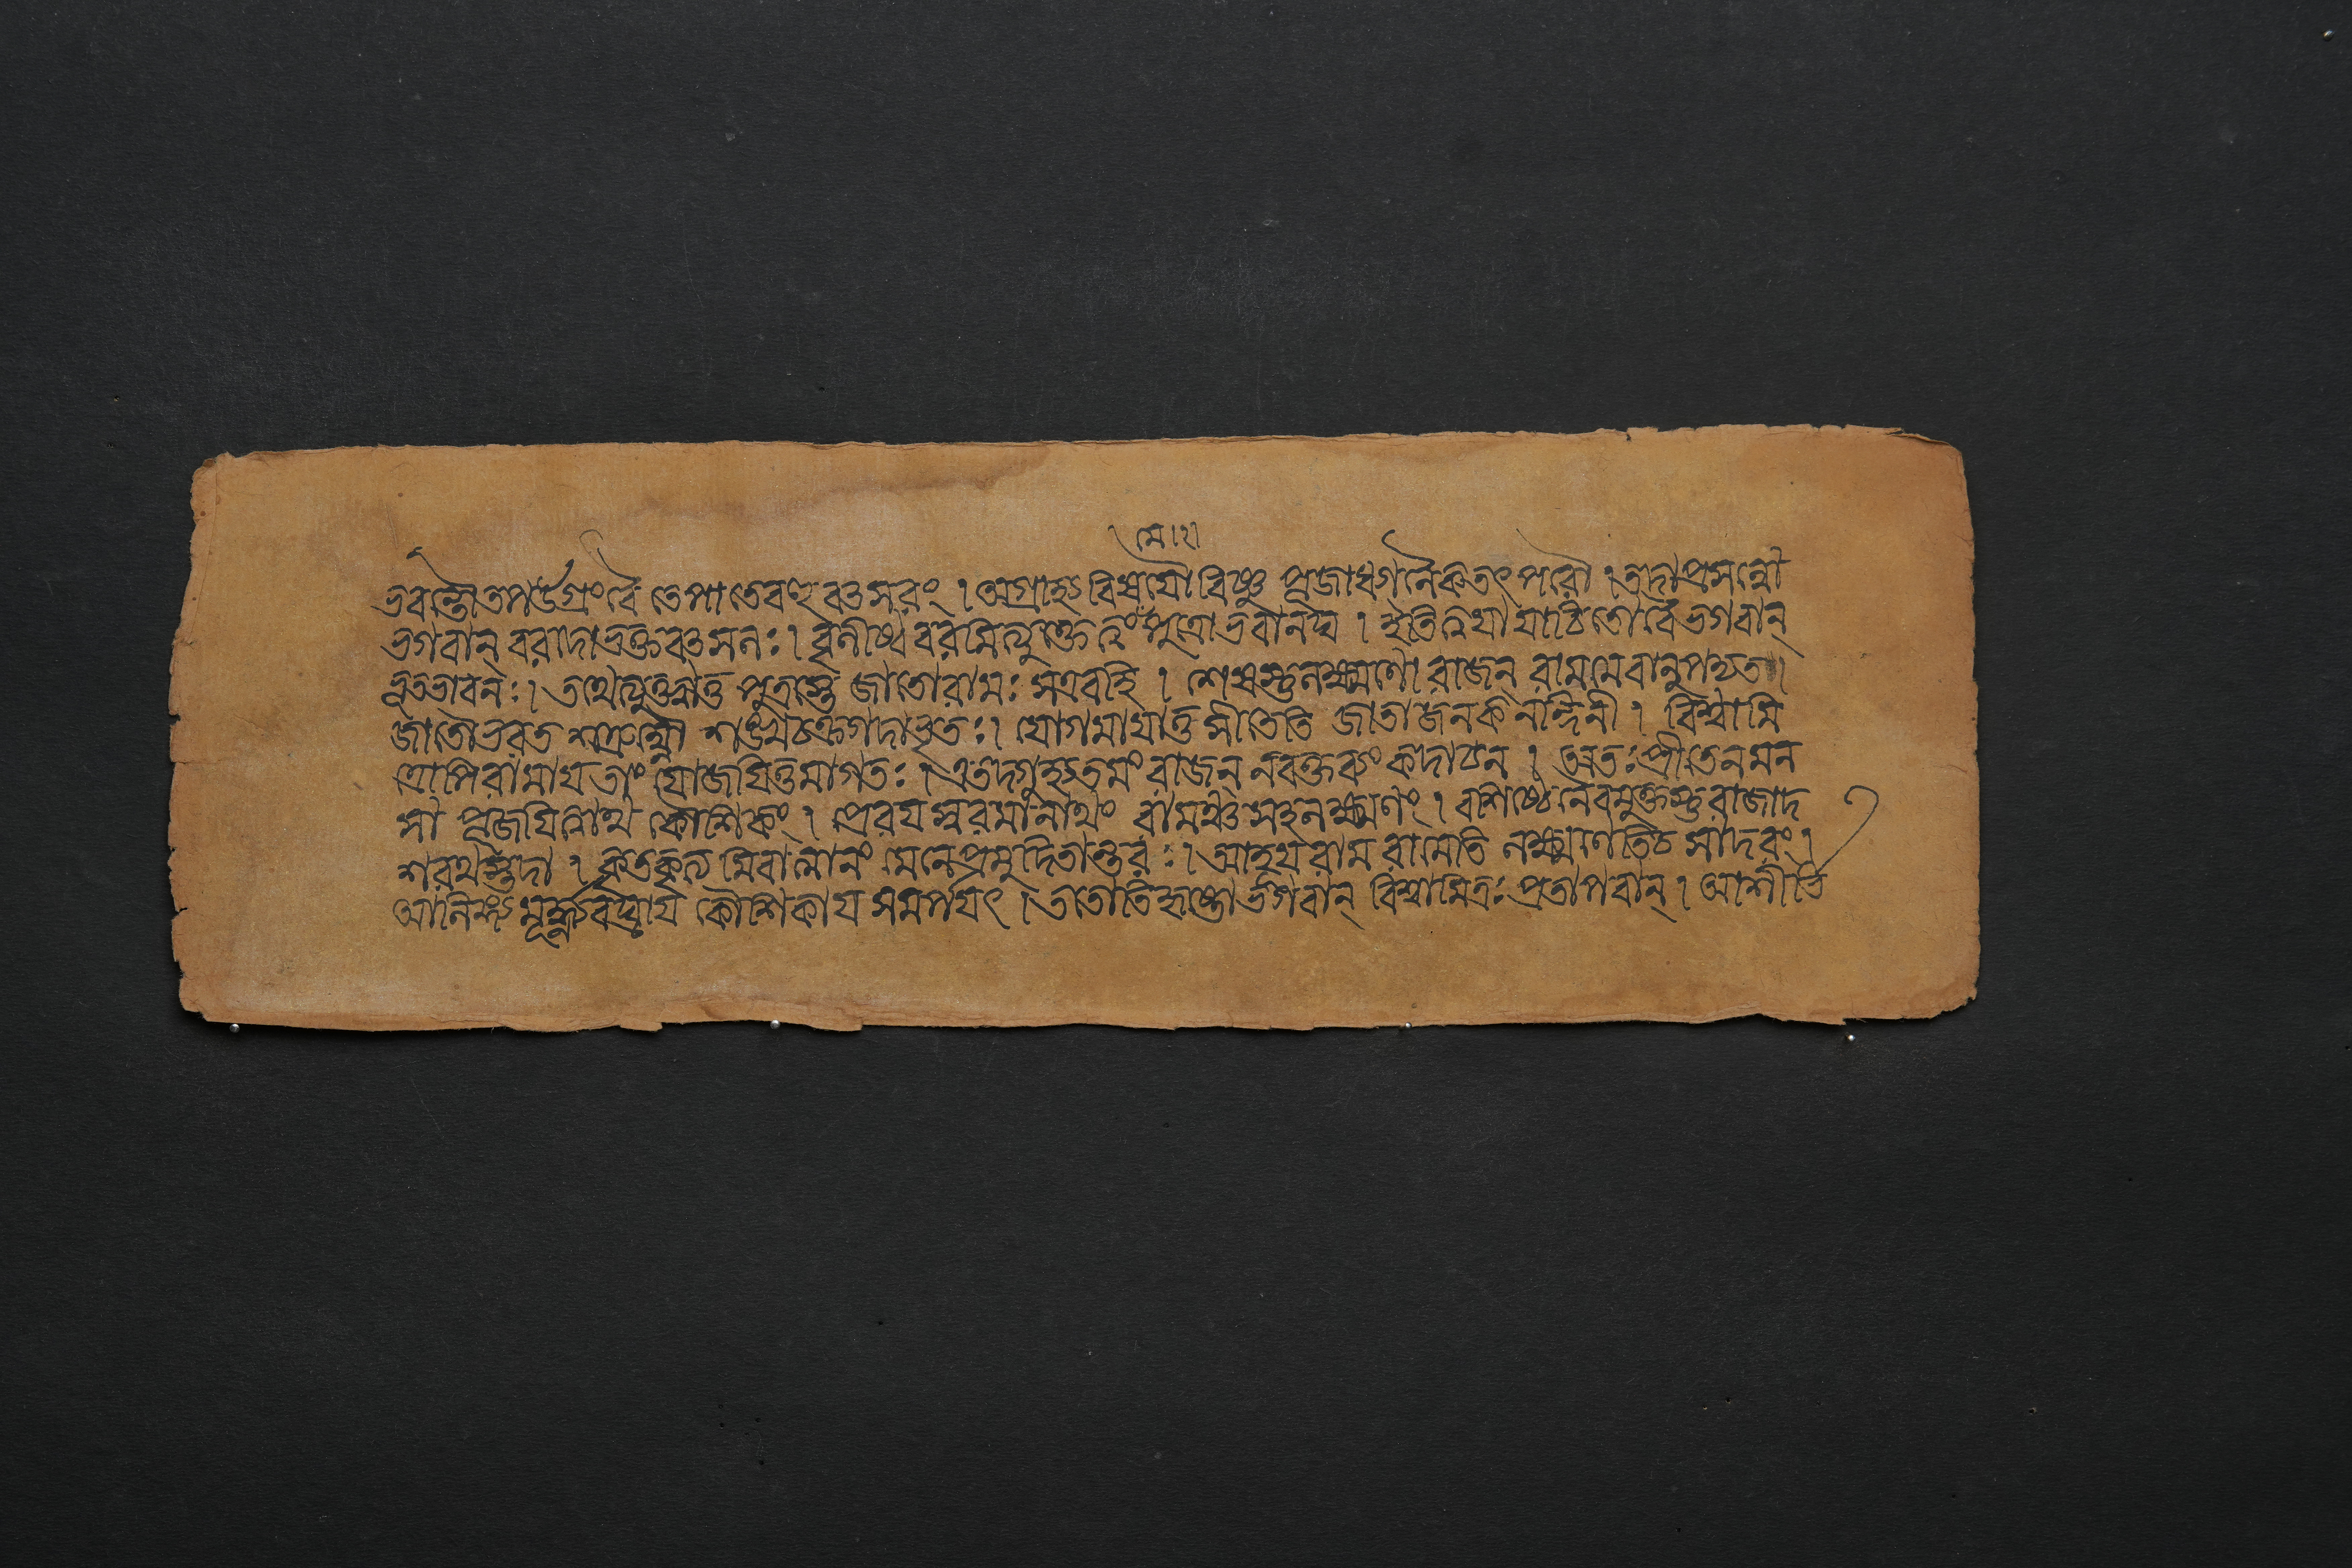 ।মে।২।
ভবন্তৌ তপউগ্রং বৈ তেপাতে বহু বত্সরং । অগ্রাহ্য বিষয়ৌ বিষ্ণু পূজাধ্যানৈকতৎপরৌ । তদা প্রসন্নৌ
ভগবান্ বরদো ভক্তবত্সলঃ । বৃণীষ্ব বরমিত্যুক্তে ত্বং পুত্রো ভবানঘ । ইতি ত্বয়া যাচিতো বৈ ভগবান্
ভূতভাবনঃ । তথেত্যুক্ত্বাত্ত পুত্রস্তে জাতো রামঃ সএবহি । শেষস্তু লক্ষ্মণো রাজন্ রামমেবানুপদ্যত ।
জাতৌ ভরত শত্রুঘ্নৌ শঙ্খচক্রেগদাভৃতঃ । যোগমায়াত্ত সীতেতি জাতা জনকনন্দিনী । বিশ্বামি
ত্রোপি রামায় তাং যোজয়িতুমাগতঃ । এতদ্গুহ্যতমং রাজন্ নবক্তব্যং কদাচন । অতঃ প্রীতেন মন
সা পূজয়িত্বাথ কৌশিকং । প্রেরয়স্ব রমানাথং রামঞ্চ সহলক্ষ্মণং । বশিষ্ঠেনৈবমুক্তস্তু রাজাদ
শরথস্তদা । কৃতকৃত্যমিবাত্মানং মেনে প্রমুদিতান্তরঃ । আহূয় রাম রামেতি লক্ষ্মণেতিচ সাদরং ।
আলিঙ্গ্য মূর্দ্ধ্ন্যবঘ্রায় কৌশিকায় সমর্পয়ৎ । ততোতিহৃষ্টো ভগবান্ বিশ্বামিত্রঃ প্রতাপবান্ । আশীর্ভি